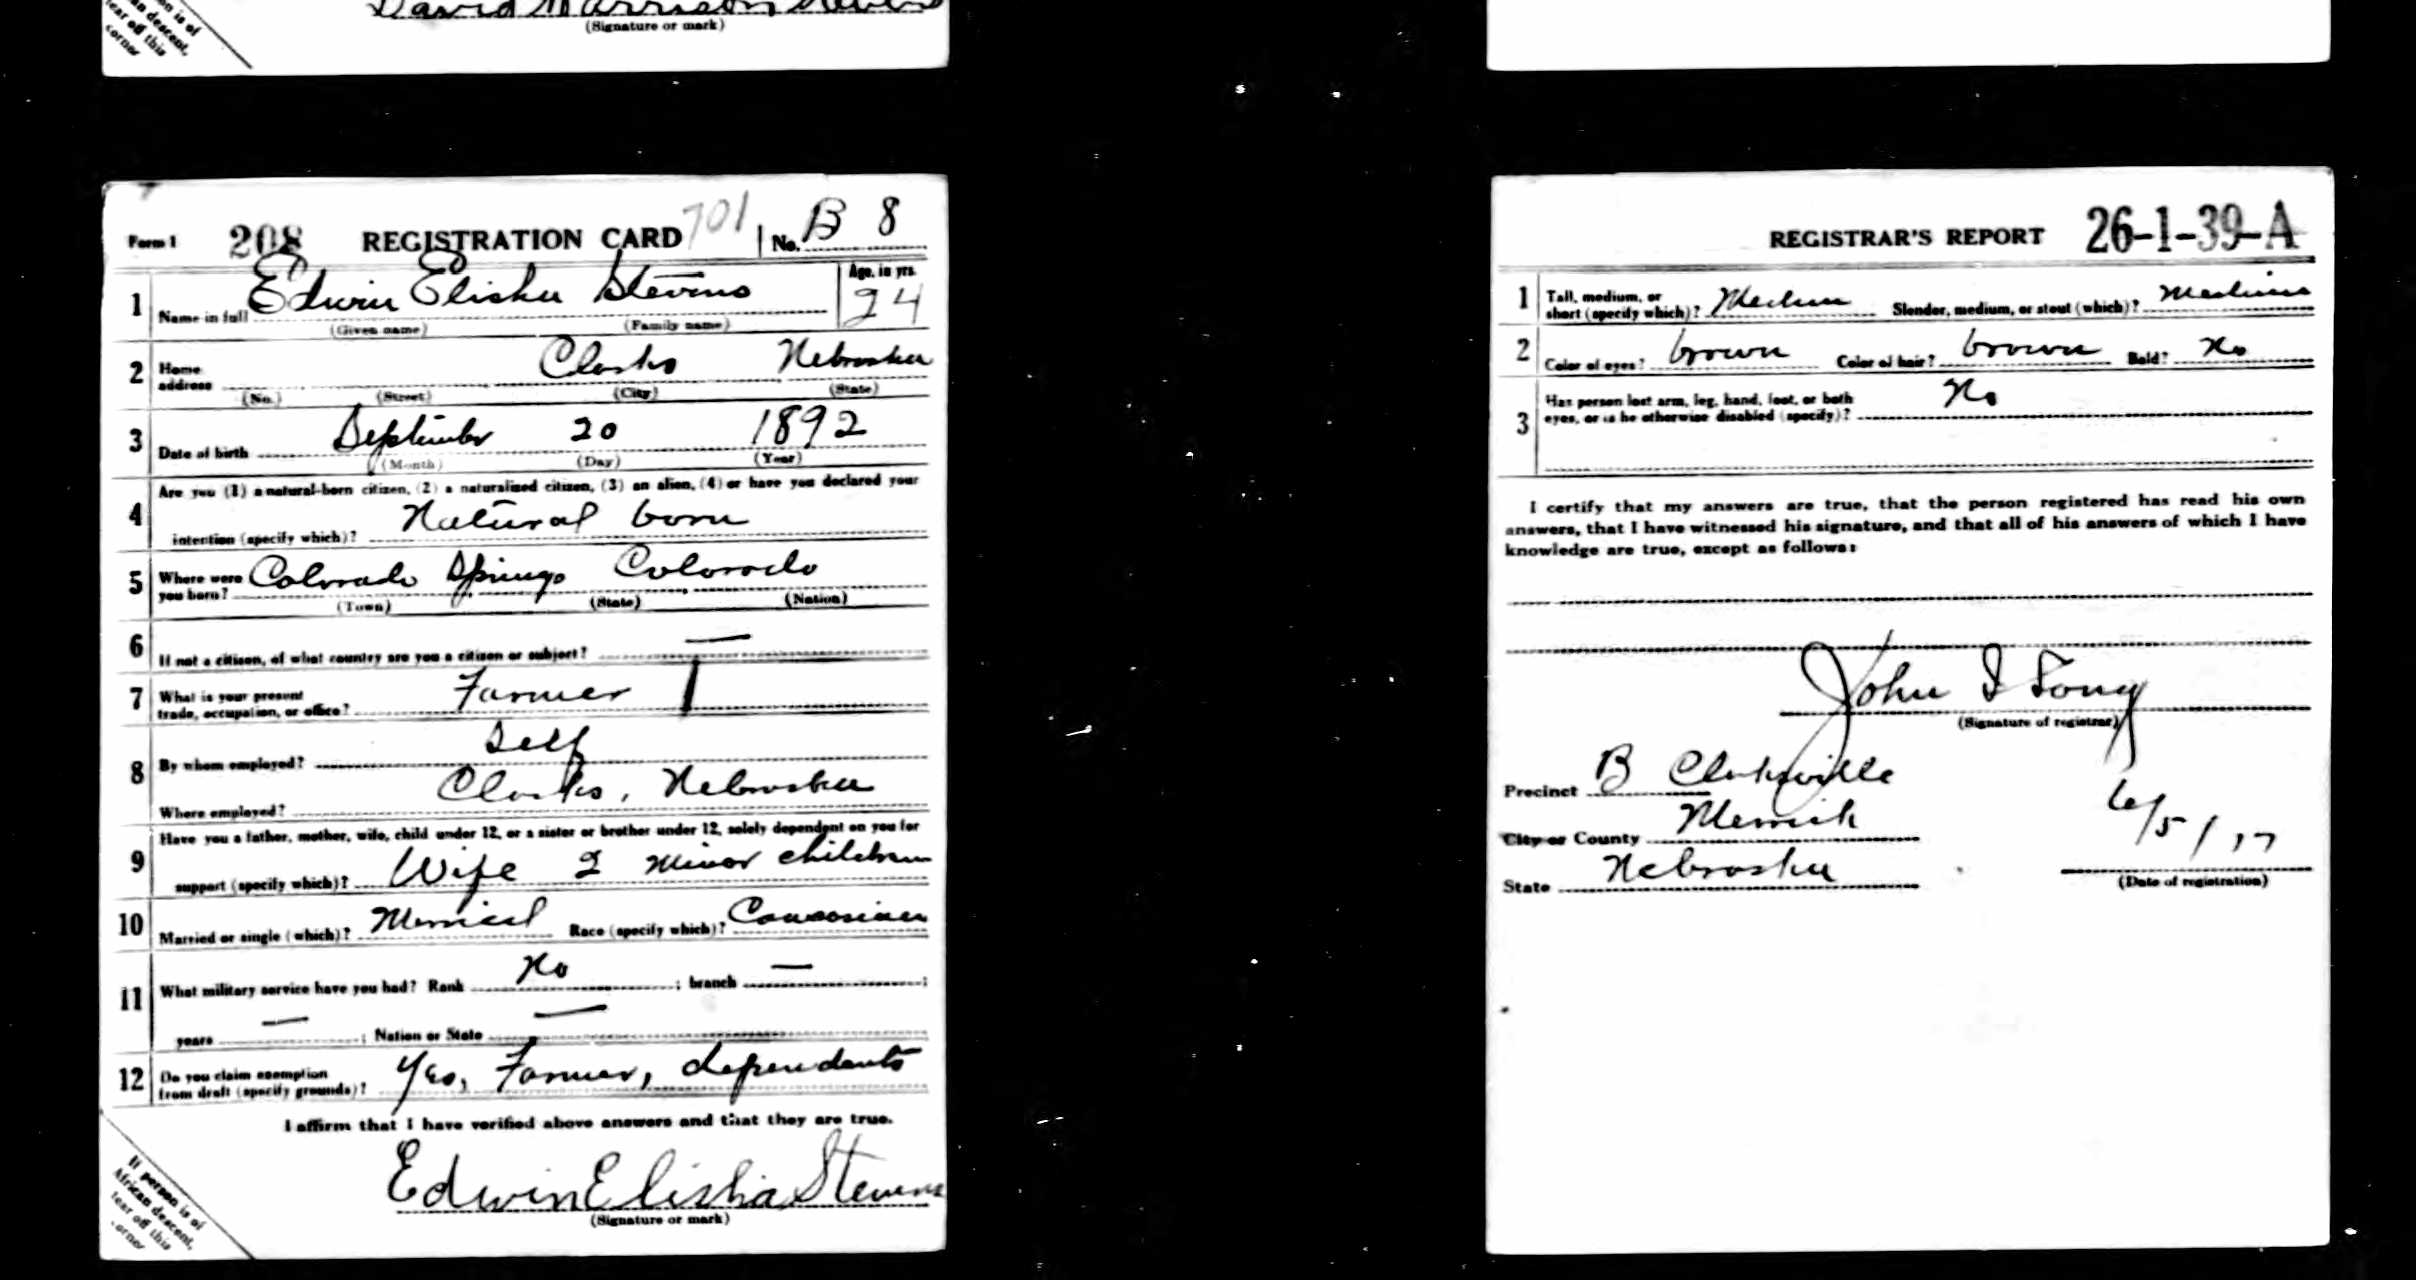 If person is of
African descent,
tear off this
corner
David Harrison Stevens
(Signature or mark)
Form 1 208 REGISTRATION CARD 701 No. B 8
1 Name in full Edwin Elisha Stevens Age, in yrs. 24
(Given name) (Family name)
2 Home address Clarks Nebraska
(No.) (Street) (City) (State)
3 Date of birth September 20 1892
(Month) (Day) (Year)
4 Are you (1) a natural-born citizen, (2) a naturalized citizen, (3) an alien, (4) or have you declared your
intention (specify which)? Natural born
5 Where were you born? Colorado Springs Colorado
(Town) (State) (Nation)
6 If not a citizen, of what country are you a citizen or subject? —
7 What is your present
trade, occupation, or office? Farmer
8 By whom employed? Self
Where employed? Clarks, Nebraska
9 Have you a father, mother, wife, child under 12, or a sister or brother under 12, solely dependent on you for
support (specify which)? Wife 2 minor children
10 Married or single (which)? Married Race (specify which)? Caucasian
11 What military service have you had? Rank No ; branch — ;
years — ; Nation or State —
12 Do you claim exemption
from draft (specify grounds)? Yes, Farmer, dependents
I affirm that I have verified above answers and that they are true.
Edwin Elisha Stevens
(Signature or mark)
If person is of
African descent,
tear off this
corner
REGISTRAR'S REPORT 26-1-39-A
1 Tall, medium, or
short (specify which)? Medium Slender, medium, or stout (which)? Medium
2 Color of eyes? brown Color of hair? brown Bald? No
3 Has person lost arm, leg, hand, foot, or both
eyes, or is he otherwise disabled (specify)? No
I certify that my answers are true, that the person registered has read his own
answers, that I have witnessed his signature, and that all of his answers of which I have
knowledge are true, except as follows:
John
(Signature of registrar)
Precinct B Clarksville
City or County Merrick
State Nebraska
6/5/17
(Date of registration)